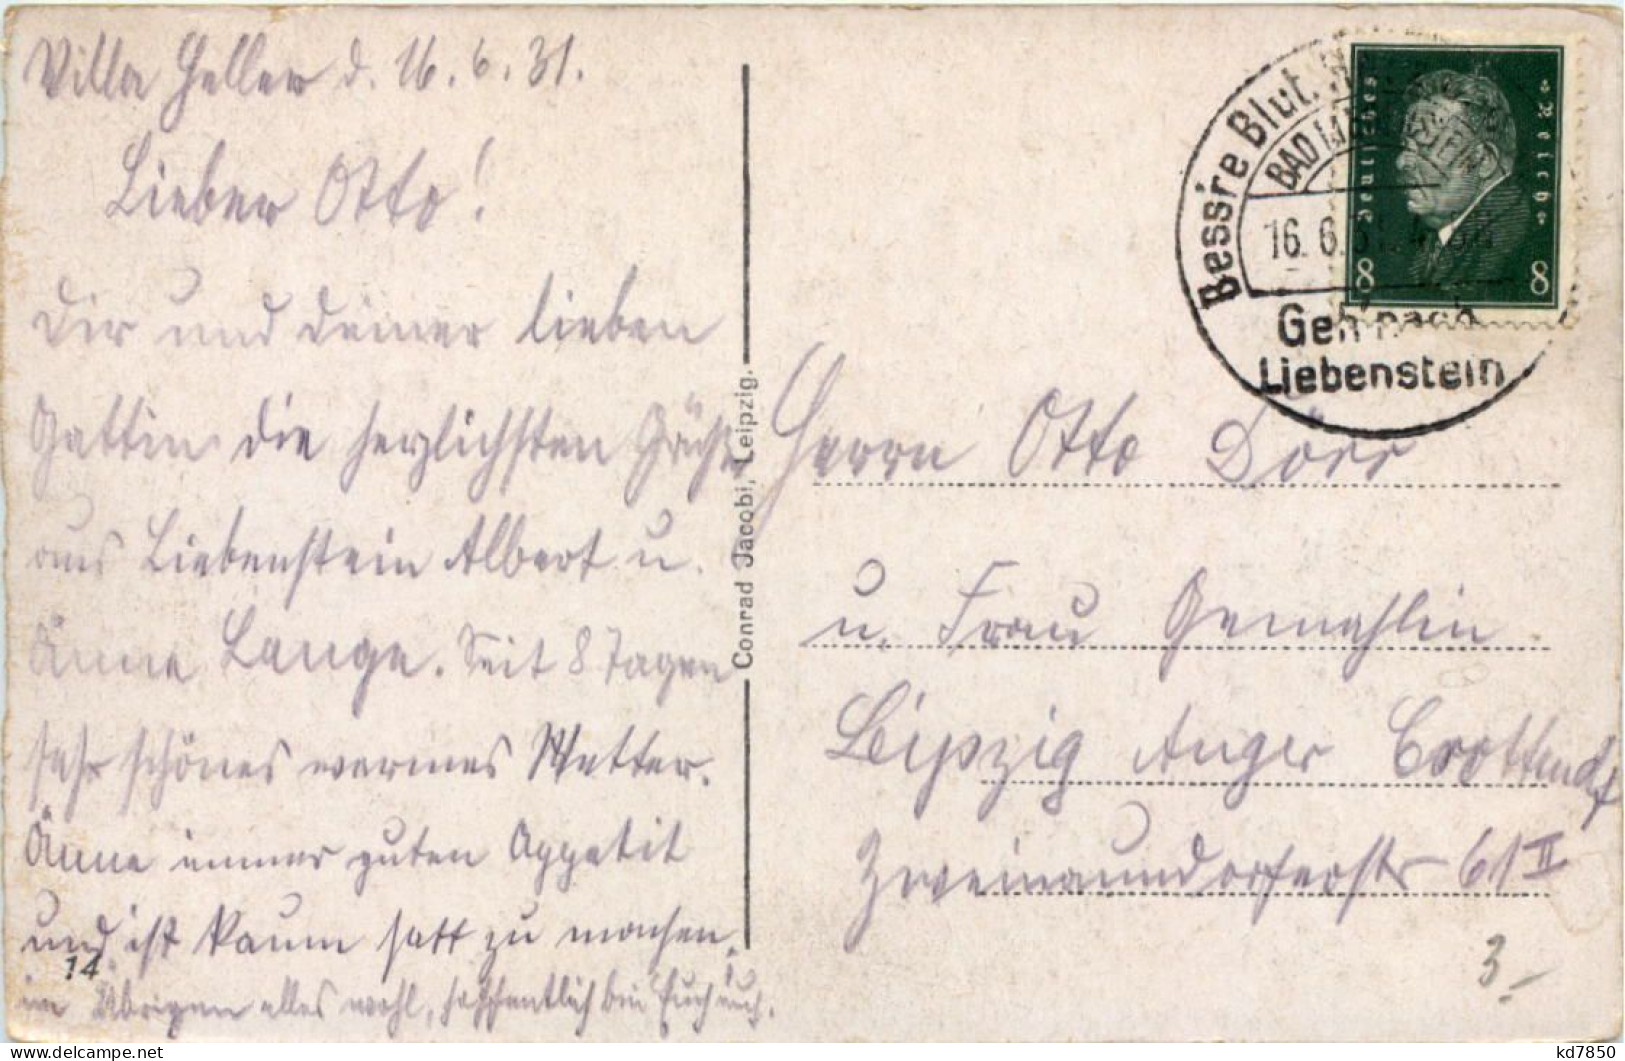 Villa Heller d. 16.6.31.
Lieber Otto!
Dir und deiner lieben
Gattin die herzlichsten Grüße
aus Liebenstein Albert u.
Änne Lange. Seit 8 Tagen
sehr schönes warmes Wetter.
Änne immer guten Appetit
und ist kaum satt zu machen.
im Übrigen alles wohl, hoffentlich bei Euch auch.
14
Conrad Jacobi, Leipzig.
Bessre Blut.
BAD LIEBENSTEIN
16. 6. 31.
Geh nach
Liebenstein
Deutsches Reich
8 8
Herrn Otto Dörr
u. Frau Gemahlin
Leipzig Anger Crottendf
Zweinaundorferstr 61 II
3.-
kd7850